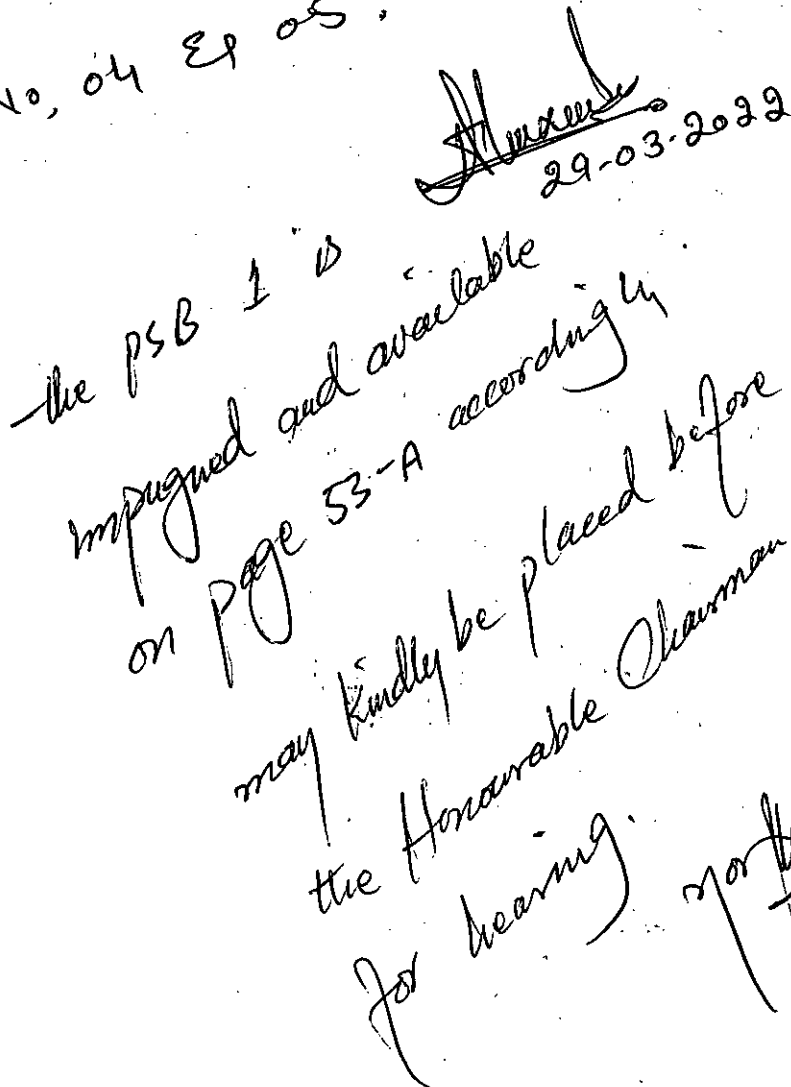 No, 04 & 05.
29-03-2022
the PSB 1 is
impugned and available
on page 53-A accordingly
may kindly be placed before
the Honourable Chairman
for hearing.